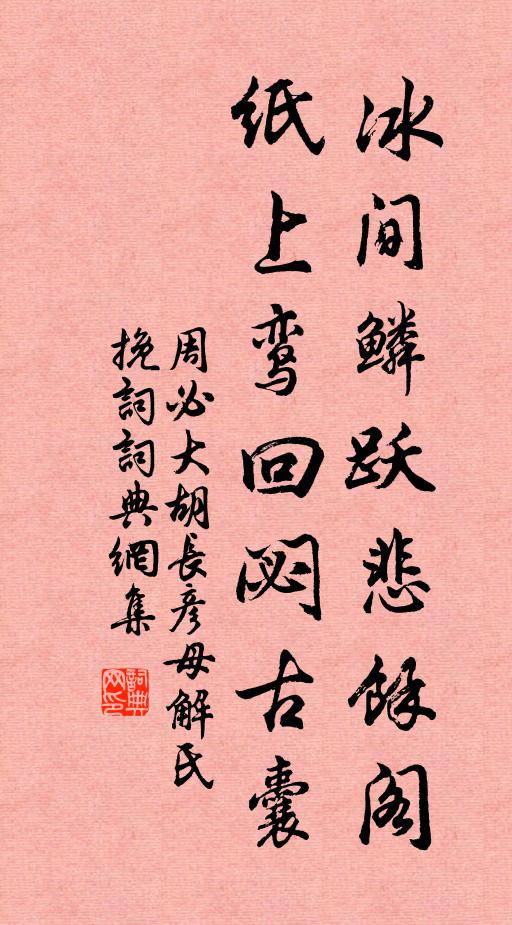 冰间鳞跃悲馀阁
纸上鸾回閟古囊
周必大胡長彦母解氏
挽詞詞典網集
詞典网印